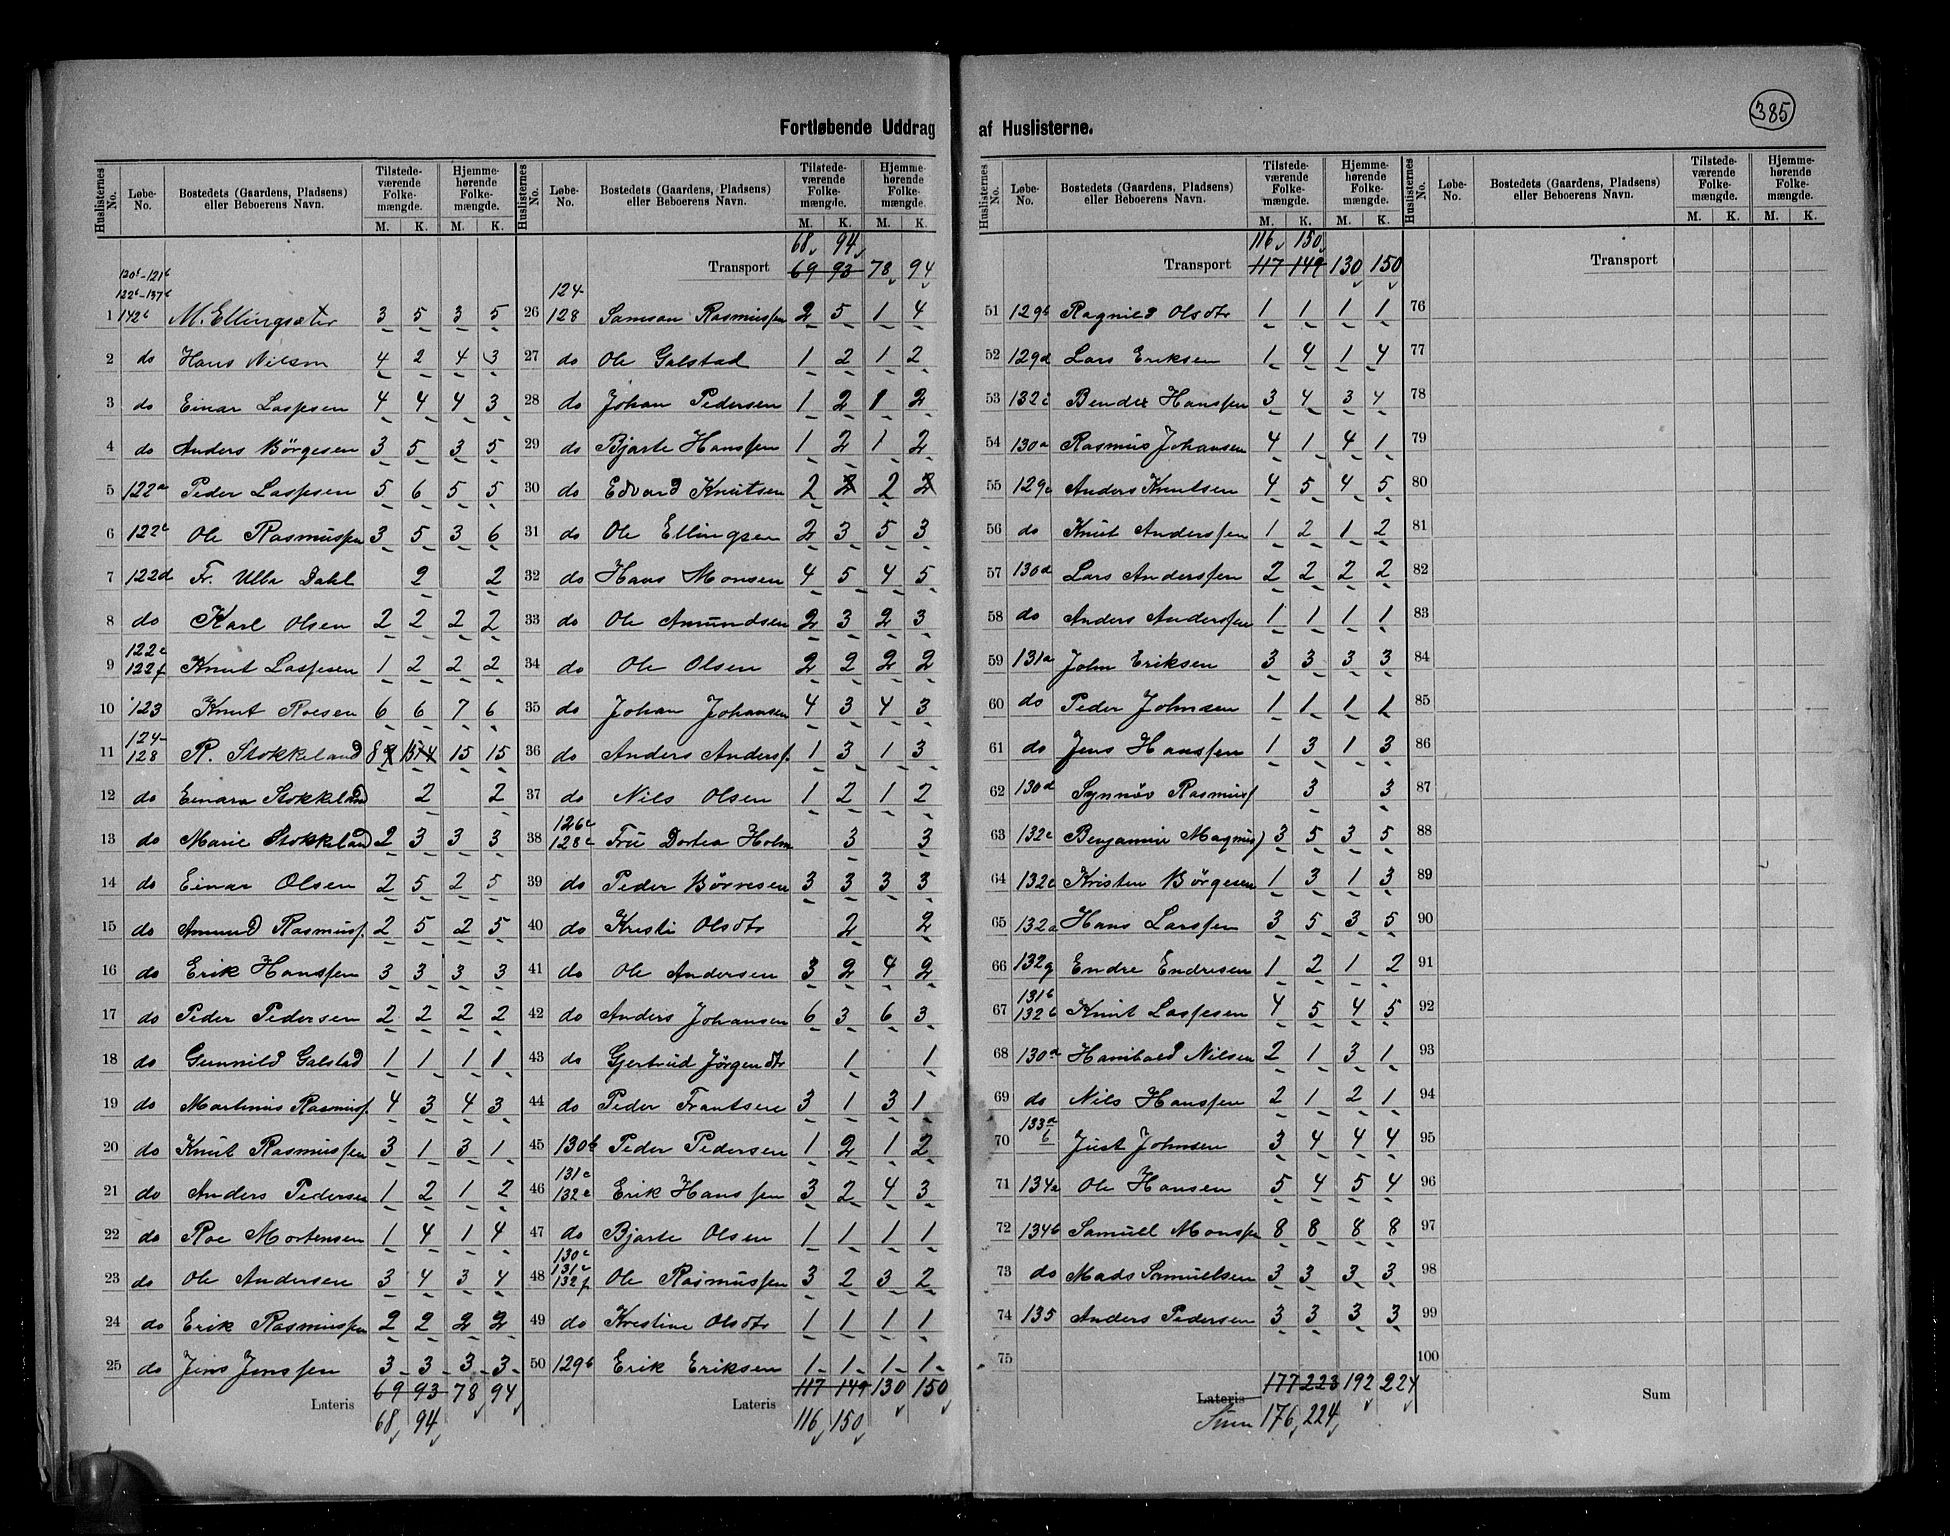 385
Fortløbende Uddrag af Huslisterne.
Huslisternes No. Løbe-No. Bostedets (Gaardens, Pladsens) eller Beboerens Navn. Tilstede-værende Folke-mængde. M. K. Hjemme-hørende Folke-mængde. M. K.
120b-121b
122b-137b
1 142b M. Ellingsæter 3 5 3 5
2 do Hans Nilsen 4 2 4 3
3 do Einar Lassesen 4 4 4 3
4 do Anders Børgesen 3 5 3 5
5 122a Peder Lassesen 5 6 5 5
6 122c Ole Rasmussen 3 5 3 6
7 122d Fr. Ulla Dahl 2 2
8 do Karl Olsen 2 2 2 2
122e
9 122f Knut Lassesen 1 2 2 2
10 123 Knut Roesen 6 6 7 6
124-
11 128 R. Stokkeland 8 15 15 15
12 do Einara Stokkeland 2 2
13 do Marie Stokkeland 2 3 3 3
14 do Einar Olsen 2 5 2 5
15 do Amund Rasmuss. 2 5 2 5
16 do Erik Hanssen 3 3 3 3
17 do Peder Pedersen 2 2 2 2
18 do Gunnild Galstad 1 1 1 1
19 do Martinus Rasmuss. 4 3 4 3
20 do Knut Rasmussen 3 1 3 1
21 do Anders Pedersen 1 2 1 2
22 do Roe Mortensen 1 4 1 4
23 do Ole Andersen 3 4 3 4
24 do Erik Rasmussen 2 2 2 2
25 do Jens Jenssen 3 3 3 3
Lateris 69 93 78 94
68 94
Huslisternes No. Løbe-No. Bostedets (Gaardens, Pladsens) eller Beboerens Navn. Tilstede-værende Folke-mængde. M. K. Hjemme-hørende Folke-mængde. M. K.
68 94
Transport 69 93 78 94
124-
26 128 Samson Rasmussen 2 5 1 4
27 do Ole Galstad 1 2 1 2
28 do Johan Pedersen 1 2 1 2
29 do Bjarte Hanssen 1 2 1 2
30 do Edvard Knutsen 2 2 2 2
31 do Ole Ellingsen 2 3 5 3
32 do Hans Monsen 4 5 4 5
33 do Ole Amundsen 2 3 2 3
34 do Ole Olsen 2 2 2 2
35 do Johan Johansen 4 3 4 3
36 do Anders Anderss. 1 3 1 3
37 do Nils Olsen 1 2 1 2
126c
38 128c Fru Dortea Holm 3 3
39 do Peder Børresen 3 3 3 3
40 do Kristi Olsdtr 2 2
41 do Ole Andersen 3 2 4 2
42 do Anders Johansen 6 3 6 3
43 do Gjertrud Jørgensdtr 1 1
44 do Peder Frantsen 3 1 3 1
45 130b Peder Pedersen 1 2 1 2
131c
46 132e Erik Hanssen 3 2 4 3
47 do Bjarte Olsen 1 1 1 1
130c
131c
48 132f Ole Rasmussen 3 2 3 2
49 do Kristine Olsdtr 1 1 1 1
50 129b Erik Eriksen 1 1 1 1
Lateris 117 149 130 150
116 150
Huslisternes No. Løbe-No. Bostedets (Gaardens, Pladsens) eller Beboerens Navn. Tilstede-værende Folke-mængde. M. K. Hjemme-hørende Folke-mængde. M. K.
116 150
Transport 117 149 130 150
51 129b Ragnild Olsdtr 1 1 1 1
52 129d Lars Eriksen 1 4 1 4
53 132i Bendix Hanssen 3 4 3 4
54 130a Rasmus Johansen 4 1 4 1
55 129c Anders Knutsen 4 5 4 5
56 do Knut Anderssen 1 2 1 2
57 130d Lars Anderssen 2 2 2 2
58 do Anders Anderssen 1 1 1 1
59 131a John Eriksen 3 3 3 3
60 do Peder Johnsen 1 1 1 1
61 do Jens Hanssen 1 3 1 3
62 130d Synnøv Rasmus 3 3
63 132c Benjamin Magnus 3 5 3 5
64 132c Kristen Børgesen 1 3 1 3
65 132a Hans Larssen 3 5 3 5
66 132g Endre Endresen 1 2 1 2
131b
67 132b Knut Lassesen 4 5 4 5
68 130a Hanibald Nilsen 2 1 3 1
69 do Nils Hanssen 2 1 2 1
133a
70 b Just Johnsen 3 4 4 4
71 134a Ole Hansen 5 4 5 4
72 134b Samuel Monssen 8 8 8 8
73 do Mads Samuelsen 3 3 3 3
74 135 Anders Pedersen 3 3 3 3
75
Lateris 177 223 192 224
Sum 176 224
Huslisternes No. Løbe-No. Bostedets (Gaardens, Pladsens) eller Beboerens Navn. Tilstede-værende Folke-mængde. M. K. Hjemme-hørende Folke-mængde. M. K.
Transport
76
77
78
79
80
81
82
83
84
85
86
87
88
89
90
91
92
93
94
95
96
97
98
99
100
Sum